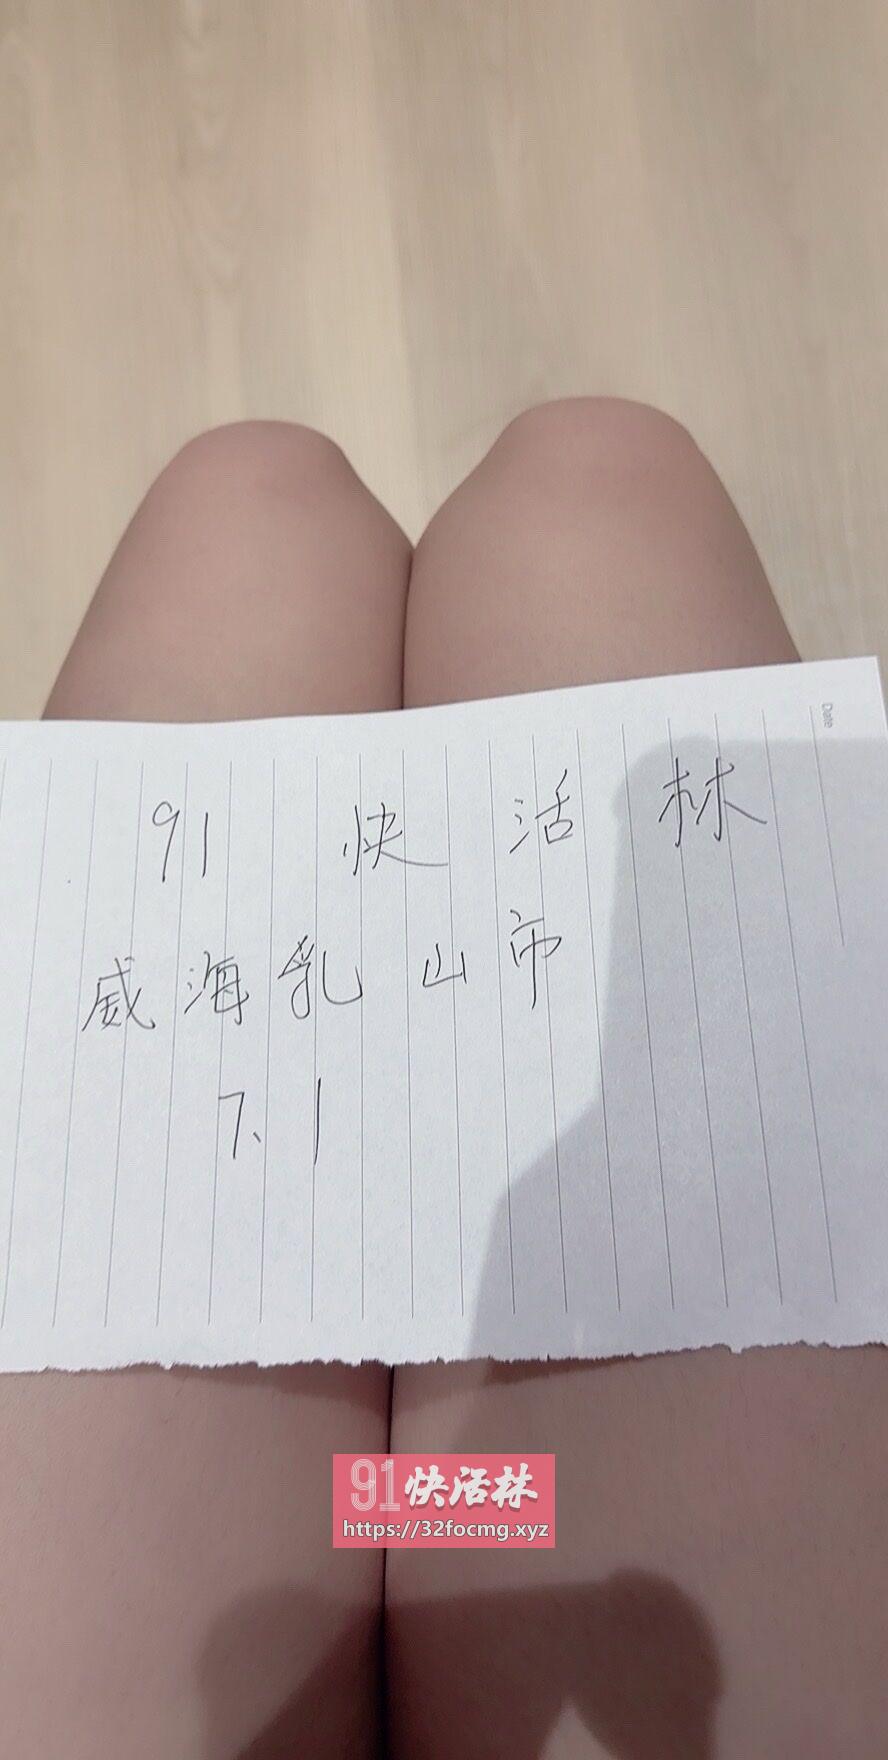 Date
91 快活林
威海乳山市
7.1
91快活林
https://32focmg.xyz